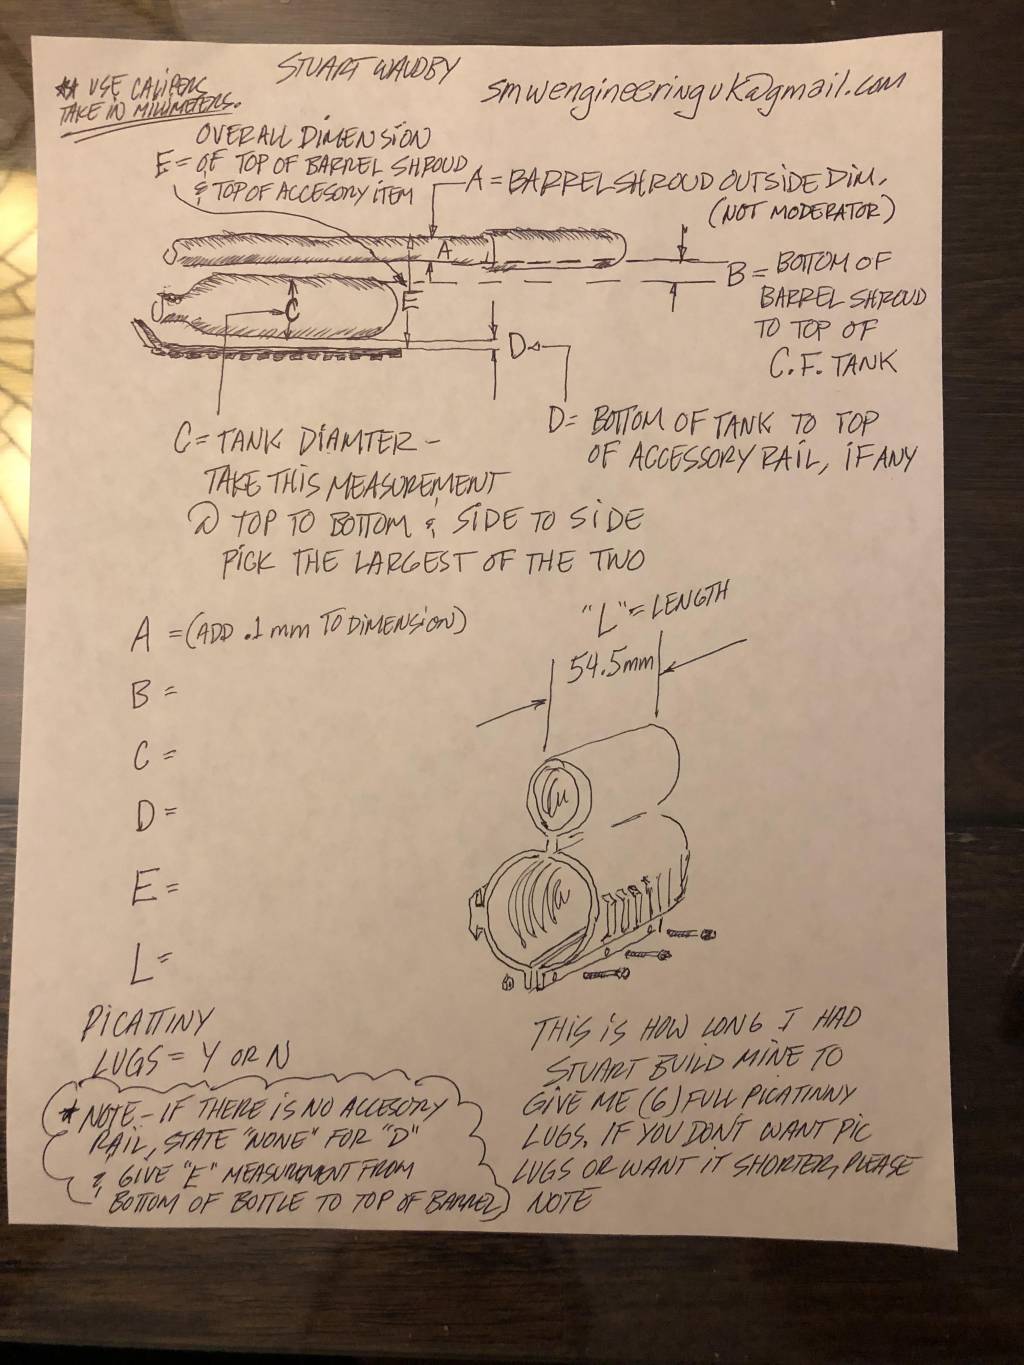 STUART WAUDBY
** USE CALIPERS
TAKE IN MILIMETERS.
smwengineeringuk@gmail.com
OVERALL DIMENSION
E = OF TOP OF BARREL SHROUD
& TOP OF ACCESORY ITEM
A = BARREL SHROUD OUTSIDE DIM.
(NOT MODERATOR)
A
B = BOTTOM OF
BARREL SHROUD
TO TOP OF
C.F. TANK
E
C
D
C = TANK DIAMTER -
TAKE THIS MEASUREMENT
@ TOP TO BOTTOM & SIDE TO SIDE
PICK THE LARGEST OF THE TWO
D = BOTTOM OF TANK TO TOP
OF ACCESSORY RAIL, IF ANY
A = (ADD .1 mm TO DIMENSION)
B =
C =
D =
E =
L =
"L" = LENGTH
54.5mm
PICATTINY
LUGS = Y OR N
* NOTE - IF THERE IS NO ACCESORY
RAIL, STATE "NONE" FOR "D"
& GIVE "E" MEASURMENT FROM
BOTTOM OF BOTTLE TO TOP OF BARREL
THIS IS HOW LONG I HAD
STUART BUILD MINE TO
GIVE ME (6) FULL PICATINNY
LUGS. IF YOU DON'T WANT PIC
LUGS OR WANT IT SHORTER, PLEASE
NOTE